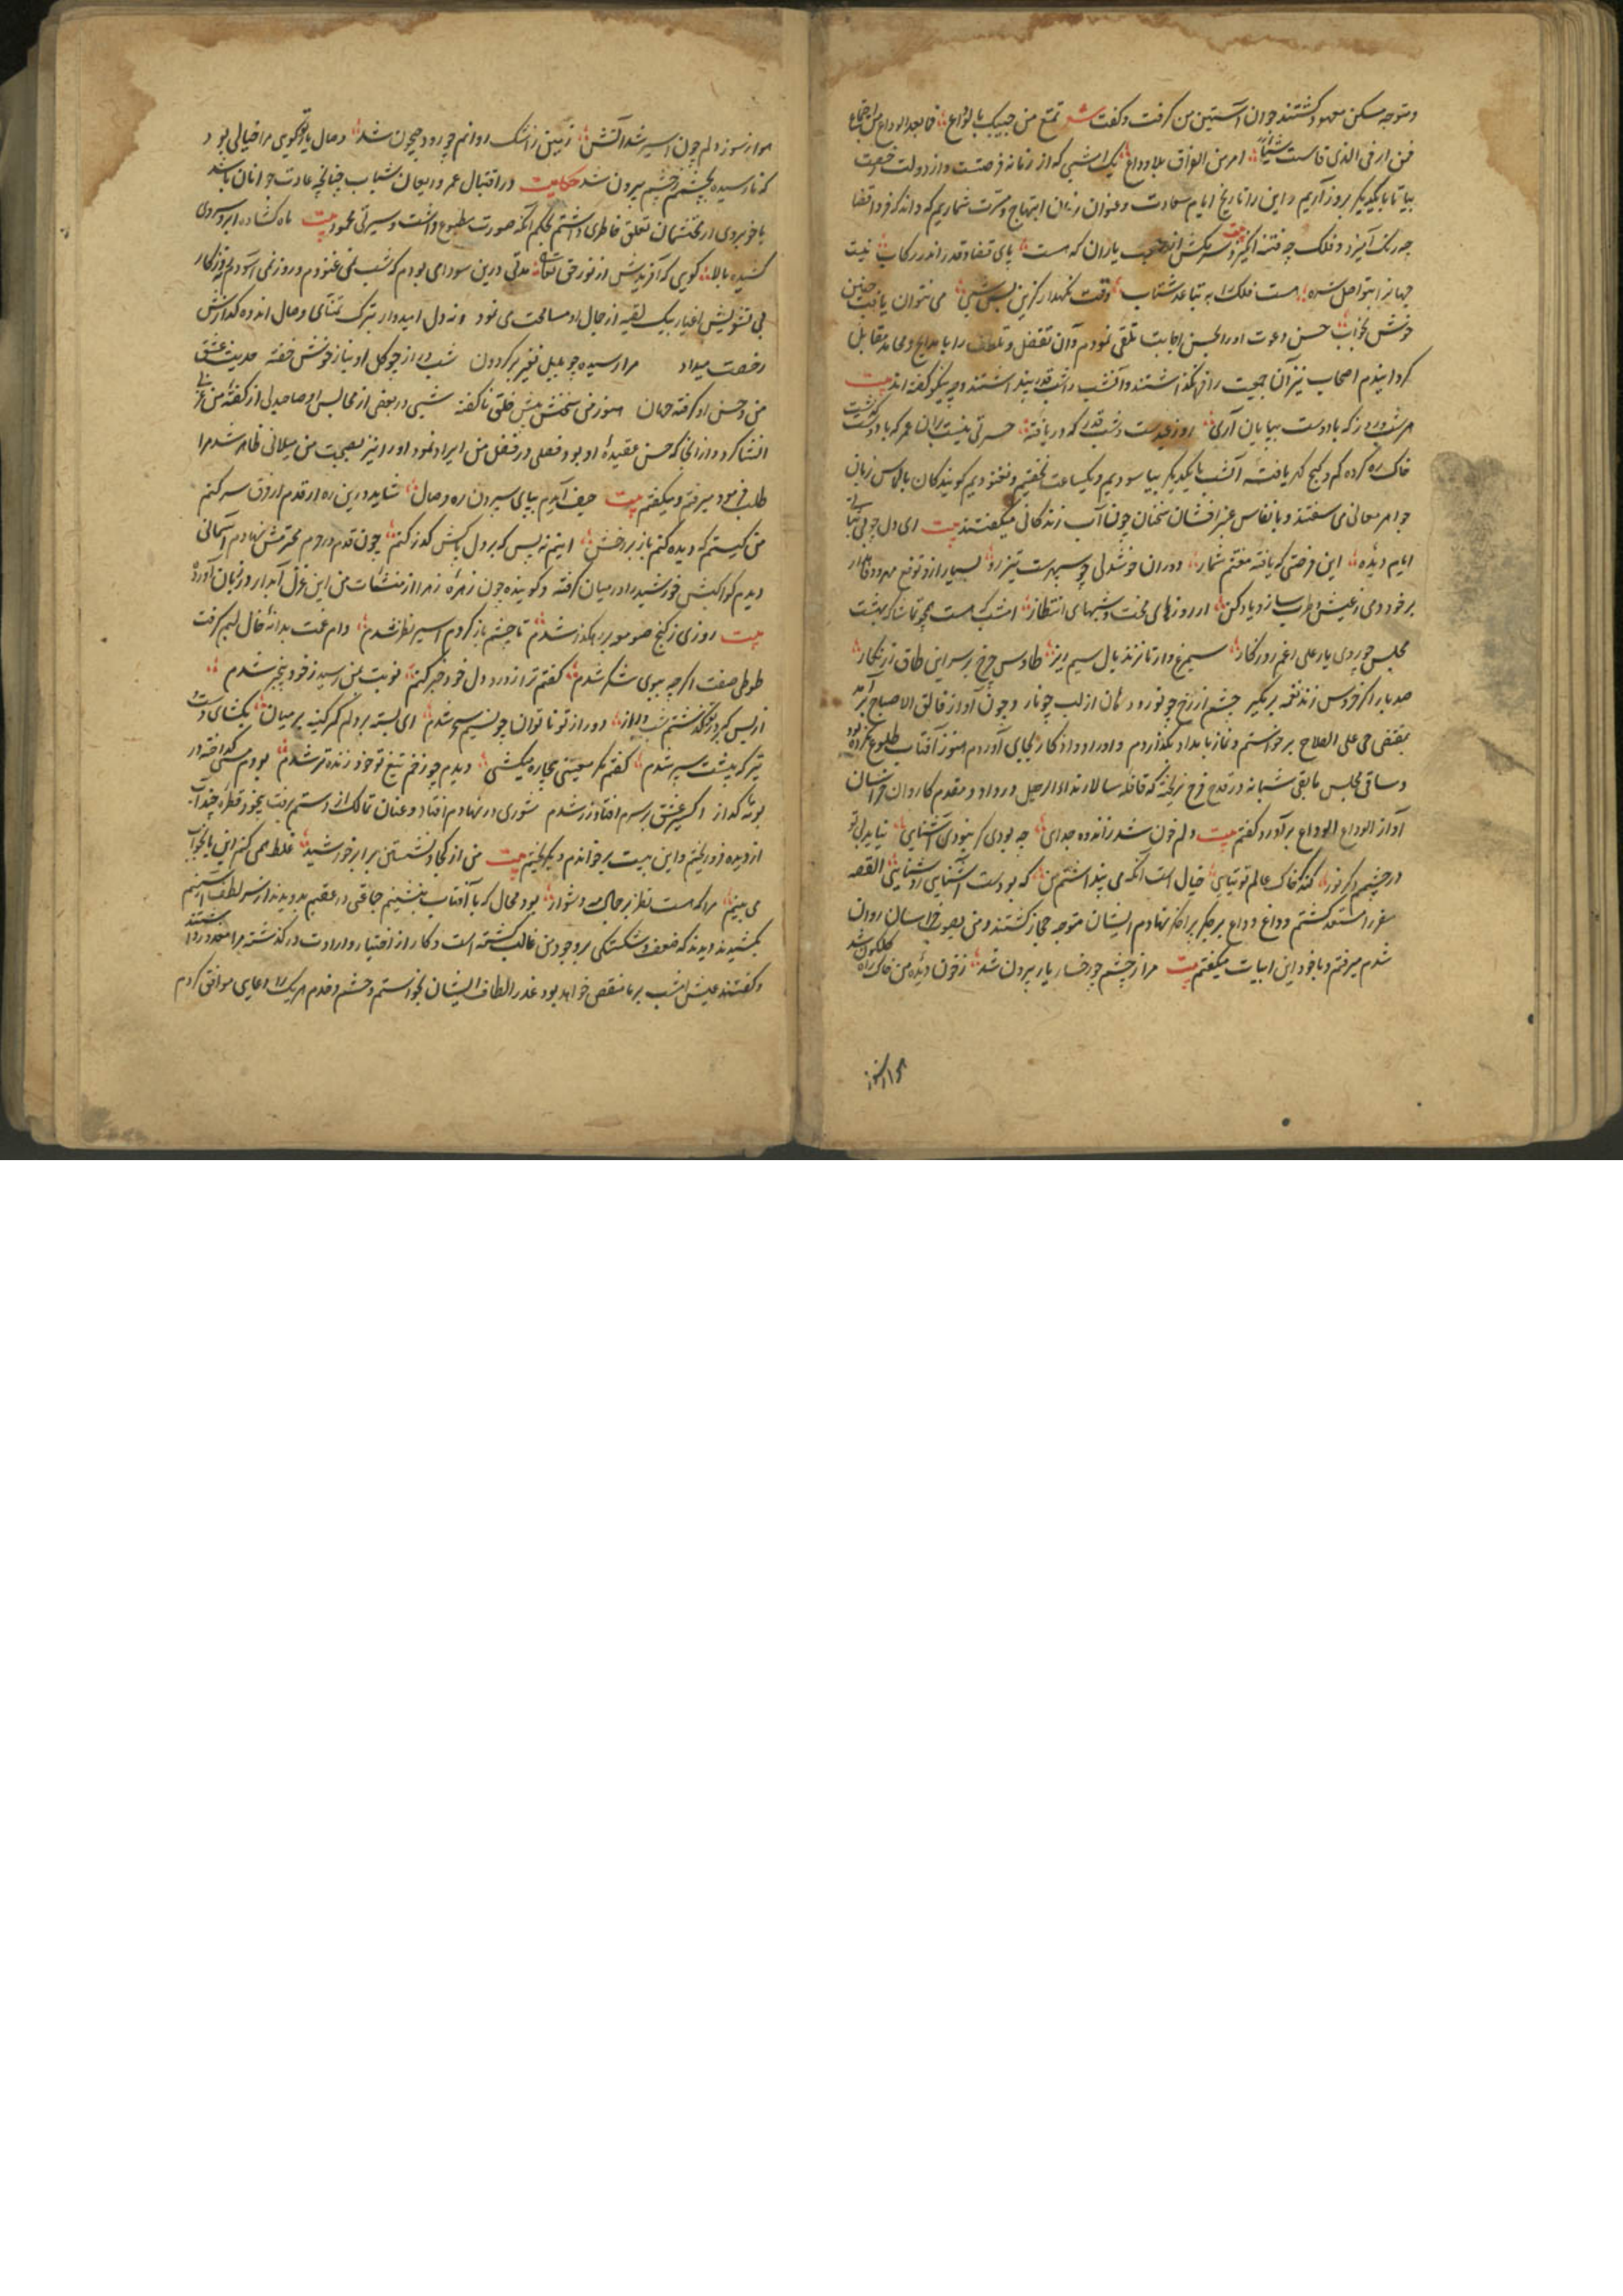 و متوجه مسکن معهود گشتند جوان آستین من گرفت و گفت شعر تمتع من حبیبک بالوداع فما بعد الوداع من اجتماع
فمن ارفی الذی قاست شیئا امر من الفراق بلا وداع یک امشبی که از زمانه فرصتست و از دولت رخصت
بیا تا با یکدیگر بروز آریم و این را تاریخ ایام سعادت و عنوان زمان ابتهاج و مسرت شماریم که داند که فردا قضا
چه رنگ آمیزد و فلک چه فتنه انگیزد بیت سرکش از صحبت یاران که هست پای قضا و قدر اندر رکاب نیت
جهانرا بتواصل شره هست فلک را به تباعد شتاب وقت نگهدار کزین پس شبی می نتوان یافت چنین
خوش بخواب حسن دعوت او را بحسن اجابت تلقی نمودم و آن تفضل و تلطف را با مدایح و محامد مقابل
گردانیدم اصحاب نیز آن جمعیت را از هم نگذاشتند و آنشب را شب قدر پنداشتند و چه نیکو گفته اند بیت
هر شب و روز که با دوست بپایان آری روز عیدست و شب قدر که دریافته حسرتی نیست بر آن عمر که با دوست گذشت
خاک ره کرده کم و گنج گهر یافته آنشب با یکدیگر بیاسودیم و یکساعت نخفتیم و نغنودیم گویندگان بالماس زبان
جواهر معانی می سفتند و بانفاس عنبر افشان سخنان چون آب زندگانی میگفتند بیت ای دل چو بی ثباتی
ایام دیده این فرصتی که یافته مغتنم شمار دوران خوشدلی چو سپهرست تیزرو بسیار ازو توقع مهر و وفا مدار
برخور دمی ز عیش و طرب ساز و یاد کن از روزهای محنت و شبهای انتظار امشب که هست بهر تماشا که بهشت
مجلس چو روی یار علی رغم روزگار سیمرغ وار تا نزند بال سیم ریز طاوس چرخ بر سر این طاق زرنگار
صد بار اگر خروس زند نغمه بر مگیر چشم از رخ چو نور و دهان از لب چو نار و چون آواز فالق الاصباح برآمد
بمقتضی حی علی الفلاح برخواستم و نماز بامداد بگذاردم و اوراد و اذکار بجای آوردم هنوز آفتاب طلوع نکرده بود
و ساقی مجلس مابقی شبانه در قدح فرح نریخته که قافله سالار ندا الرحیل در داد و مقدم کاروان خراسان
آواز الوداع الوداع برآورد گفتم بیت دلم خون شد ز اندوه جدای چه بودی گر نبودی آشنایی نیابد بی تو
در چشمم دگر نور کند گر خاک عالم توتیایی خیال است آنکه می پنداشتم من که بودست آشنایی روشنایی القصه
سفر را مستعد گشتم و داغ وداع بر جگر پر افکار نهادم ایشان متوجه حجاز گشتند و من بصوب خراسان روان
شدم میرفتم و باخود این ابیات میگفتم بیت مرا ز چشم چو رخسار یار بیرون شد ز خون دیده من خاک راه گلگون شد
هوا ز سوز دلم چون اسیر شد آتش زمین ز اشک روانم چو رود جیحون شد وصال یار تو گویی مرا خیالی بود
که نارسیده بچشمم ز چشم بیرون شد حکایت در اقتبال عمر و ریعان شباب چنانچه عادت جوانان باشد
با خوبروی از محتشمان تعلق خاطری داشتم بحکم آنکه صورت مطبوع داشت و سیرتی محمود بیت ماه گشاده ابرو سروی
کشیده بالا گویی که آفریدش از نور حق تعالی مدتی درین سودای بودم که شب نمی غنودم و روز نمی آسودم نه روزگار
بی تشویش اغیار بیک لقیه از جمال او مسامحت می نمود و نه دل امیدوار بترک تمنای وصال اندوه گدازش
رخصت میداد مرا رسیده چو بلبل نفیر بر گردون شب دراز چو گل او بناز خوش خفته حدیث عشق
من و حسن او گرفته جهان هنوز من سخنش پیش خلق ناگفته شبی در بعضی از مجالس او صاحبدلی از گفتهٔ من غزلی
انشا کرد و از آنجا که حسن عقیدهٔ او بود فصلی در فضل من ایراد نمود او را نیز بصحبت من میلانی ظاهر شد مرا
طلب فرمود میرفتم و میگفتم بیت حیف آیدم بپای سپردن ره وصال شاید درین ره ار قدم از فرق سر کنم
من کیستم که دیده کنم باز بر رخش اینم نه بس که بر دل پاکش گذر کنم چون قدم در حرم محترمش نهادم آسمانی
دیدم کواکبش خورشید را در میان گرفته و گوینده چون زهرهٔ زهرا از منشات من این غزل آبدار در زبان آورده
بیت روزی ز کنج صومعه بر رهگذر شدم تا چشم باز کردم اسیر نظر شدم دام غمت بدانهٔ خال لبم گرفت
طوطی صفت اگر چه ببوی شکر شدم گفتم ترا ز درد دل خود خبر کنم نوبت بمن رسید ز خود بیخبر شدم
از بس که بر درت گذشتم شب دراز دور از تو ناتوان چو نسیم سحر شدم ای بسته بر دلم کمر کینه بر میان بگشای دست
تیر که پیشت سپر شدم گفتم مگر معیشتی بیچاره میکشی دیدم چو زخم تیغ تو خود زنده تر شدم بودم مسی گداخته در
بوتهٔ گداز اکسیر عشق بر سرم افتاد و زر شدم شوری در نهادم افتاد و عنان تمالک از دستم برفت بیخود قطرهٔ چند آب
از دیده فرو ریختم و این بیت برخواندم و بگریختم بیت من از کجا و نشستن برابر خورشید غلط همی کنم این یا بخواب
می بینم مرا که هست نظر بر جمالت دشوار بود محال که با آفتاب بنشینم جماعتی در عقبم بدویدند از سر لطف آستینم
بکشیدند دیدند که ضعف و شکستگی بر وجود من غالب گشته است و کار از اختیار و ارادت در گذشته مرا معذور داشتند
و گفتند عیش امشب بر ما منغص خواهد بود عذر الطاف ایشان بخواستم و حشم و خدم هر یک را دعایی موافق کردم